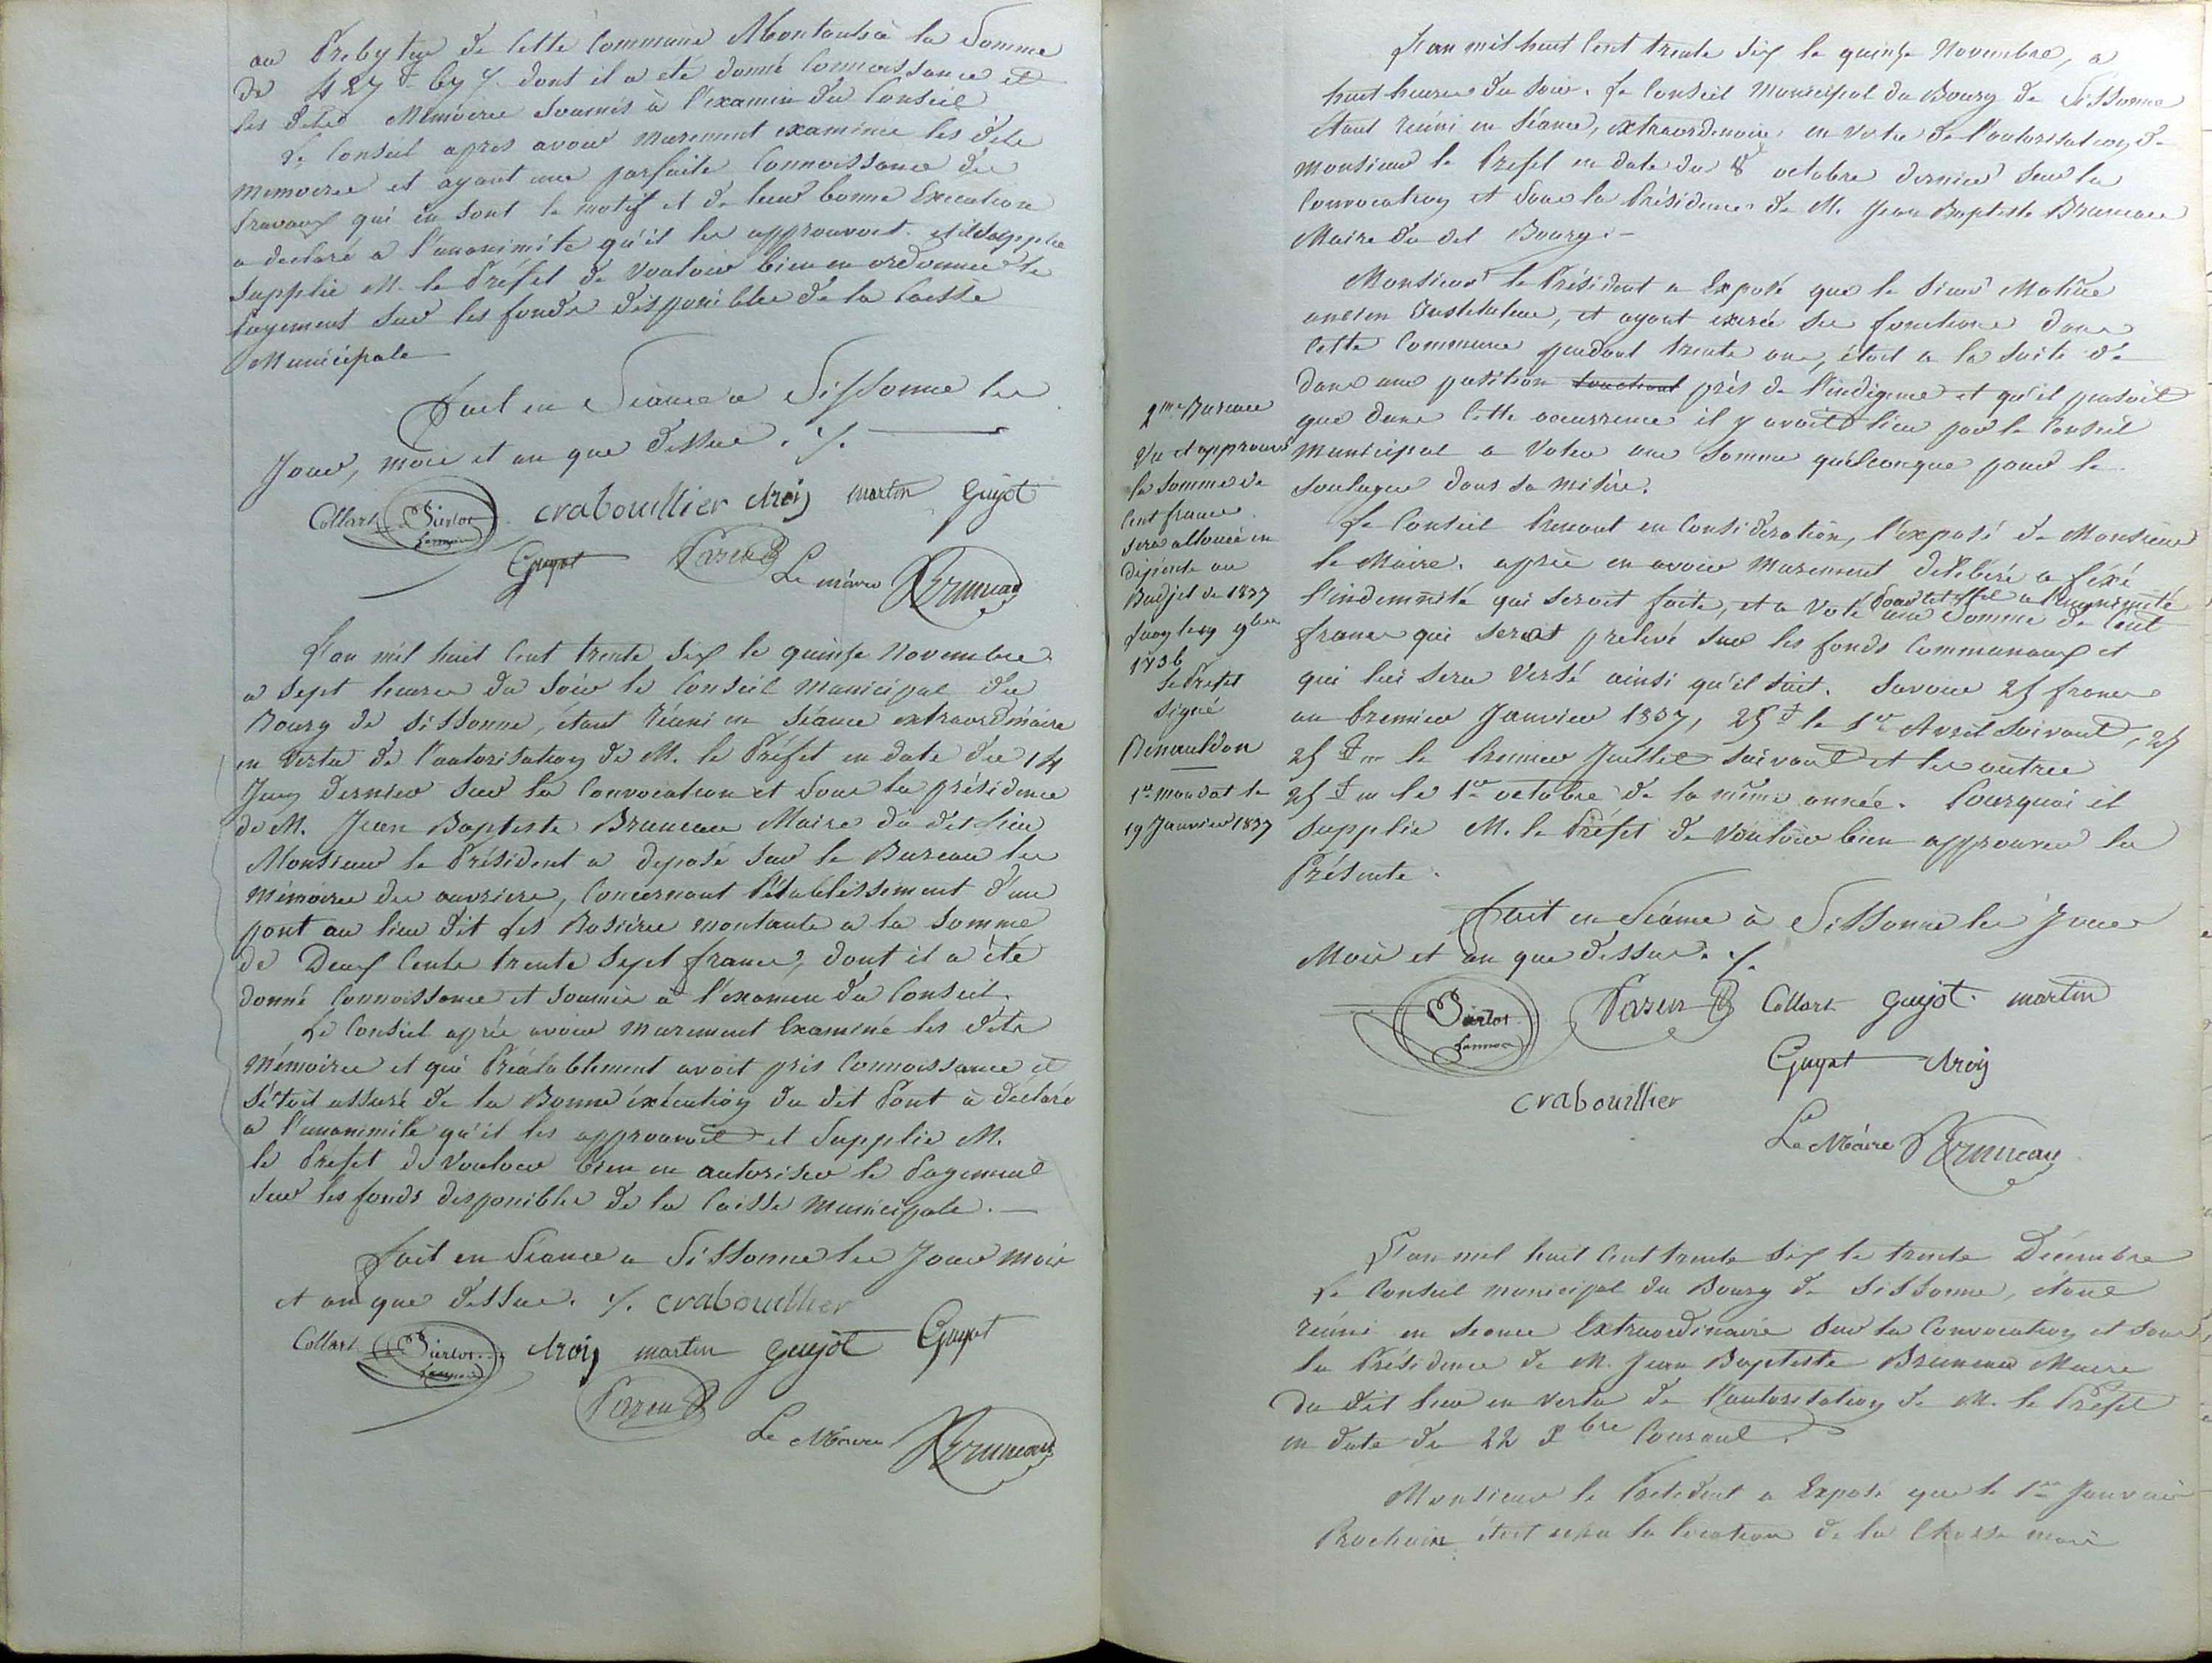 au Presbytere de Cette Commune Montants à la Somme
de 427 f 67 c. dont il a été donné Connoissance et
les dites Mémoires Soumis à l'examen du Conseil
Le Conseil apres avoir murement examiné les dits
memoires et ayant une parfaite Connoissance des
travaux qui en sont le motif et de leur bonne Execution
a declaré a l'unanimité qu'il les approuvoit et
Supplie M. le Préfet de Vouloir bien en ordonner le
payement Sur les fonds disponibles de la Caisse
Municipale
Fait en Séance a Sissonne les
Jour, mois et an que dessus ./.
Collart crabouillier Aroy martin guyot
Guyot Pazeu
Le maire Bruneau
L'an mil huit Cent trente Six le quinze Novembre
a Sept heures du Soir le Conseil Municipal du
Bourg de Sissonne, étant Réuni en Séance extraordinaire
en Vertu de l'autorisation de M. le Préfet en date du 14
Juin dernier Sur la Convocation et Sous la présidence
de M. Jean Baptiste Bruneau Maire du dit lieu
Monsieur le Président a deposé Sur le Bureau les
mémoires des ouvriers, Concernant l'établissement d'un
pont au lieu dit les Rosières montants a la Somme
de Deux Cents trente Sept francs, dont il a été
donné Connoissance et Soumis à l'examen du Conseil.
Le Conseil après avoir murement Examiné les dits
Mémoires et qui Préalablement avoit pris Connoissance et
S'étoit assuré de la Bonne éxécution du dit Pont a déclaré
a l'unanimité qu'il les approuvoit et Supplie M.
le Prefet de Vouloir bien en autoriser le Payement
Sur les fonds disponibles de la Caisse Municipale. —
Fait en Séance a Sissonne les Jour mois
et an que dessus. ./. crabouillier
Collart Aroy martin guyot Guyot
Pazeu
Le Maire Bruneau
L'an mil huit Cent trente Six le quinze Novembre, a
huit heures du Soir. Le Conseil Municipal du Bourg de Sissonne
étant Réuni en Séance, extraordinaire en Vertu de l'autorisation de
Monsieur le Prefet en date du 8 octobre dernier Sur la
Convocation et Sous la Présidence de M. Jean Baptiste Bruneau
Maire du dit Bourg. -
Monsieur le Président a Exposé que le Sieur
ancien Instituteur, et ayant exercé Ses fonctions dans
Cette Commune pendant trente ans, étoit a la Suite de
dans une position touchant près de l'indigence et qu'il pensoit
que dans Cette occurrence il y avoit lieu par le Conseil
Municipal a Voter une Somme quelconque pour le
Soulager dans Sa Misère.
Le Conseil Prenant en Considération, l'exposé de Monsieur
le Maire, après en avoir Murement délibéré a fixé
l'indemnité qui Seroit faite, et a Voté pour cet effet a l'unanimité une Somme de Cent
francs qui Seroit prelevé Sur les fonds Communaux et
qui lui Sera Versé ainsi qu'il Suit. Savoir 25 francs
au Premier Janvier 1837, 25 f le 1er Avril Suivant, 25
25 f le Premier Juillet Suivant et les autres
25 f le 1er octobre de la même année. Pourquoi il
Supplie M. le Préfet de Vouloir bien approuver la
Présente.
Fait en Séance à Sissonne les Jour
Mois et an que dessus. ./.
2me Bureau
Vu et approuvé
la Somme de
Cent francs
Sera allouée en
dépense au
Budjet de 1837
1836
Le Prefet
Signé
Renauldon
1er mandat le
19 Janvier 1837
Pazeu Collart guyot. martin
Guyot Aroy
crabouillier
Le Maire Bruneau
L'an mil huit Cent trente Six le trente Décembre
Le Conseil municipal du Bourg de Sissonne, étant
Réuni en Seance Extraordinaire Sur la Convocation et Sous
la Présidence de M. Jean Baptiste Bruneau Maire
du dit lieu en Vertu de l'autorisation de M. le Préfet
en date du 22 Xbre Courant.
Monsieur le Président a Exposé que le 1er Janvier
Prochain étoit la location de la Chasse mais